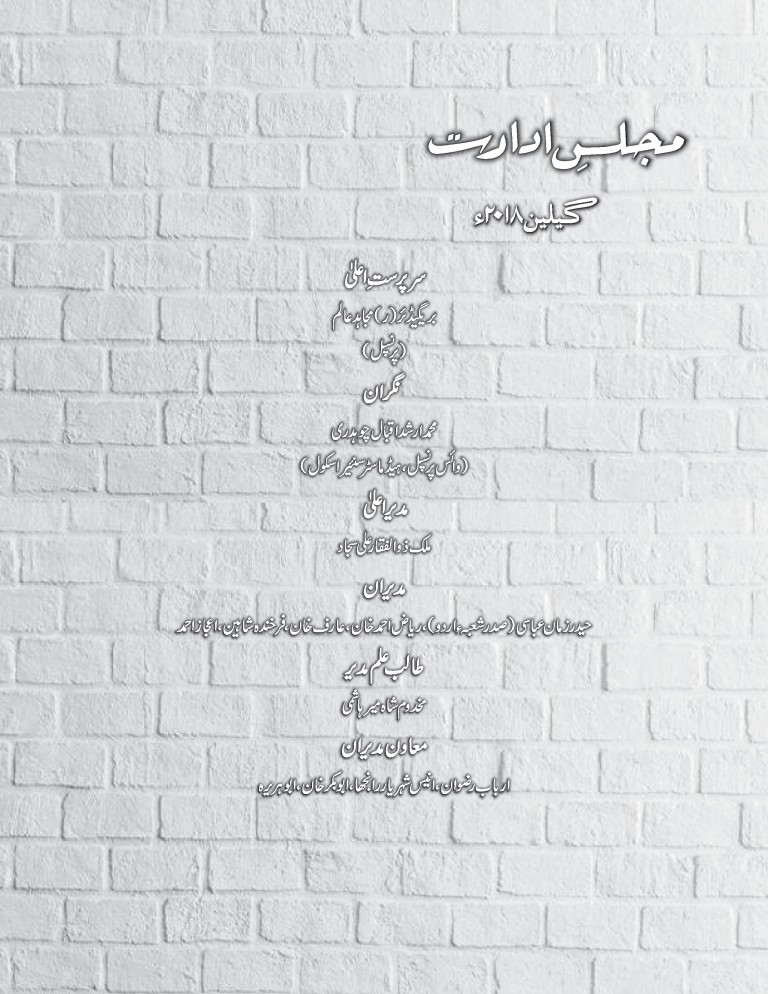 مجلسِ ادارت
گیلین ۲۰۱۸ء
سرپرستِ اعلیٰ
بریگیڈئر (ر) مجاہد عالم
(پرنسپل)
نگران
محمد ارشد اقبال چوہدری
(وائس پرنسپل، ہیڈ ماسٹر سنیئر اسکول)
مدیرِ اعلیٰ
ملک ذوالفقار علی سجاد
مدیران
حیدر زمان عباسی (صدر شعبہ اردو)، ریاض احمد خان، عارف خان، فرخندہ شاہین، اعجاز احمد
طالب علم مدیر
مخدوم شاہ میر ہاشمی
معاون مدیران
ارباب رضوان، انیس شہریار رانجھا، ابوبکر خان، ابوہریرہ